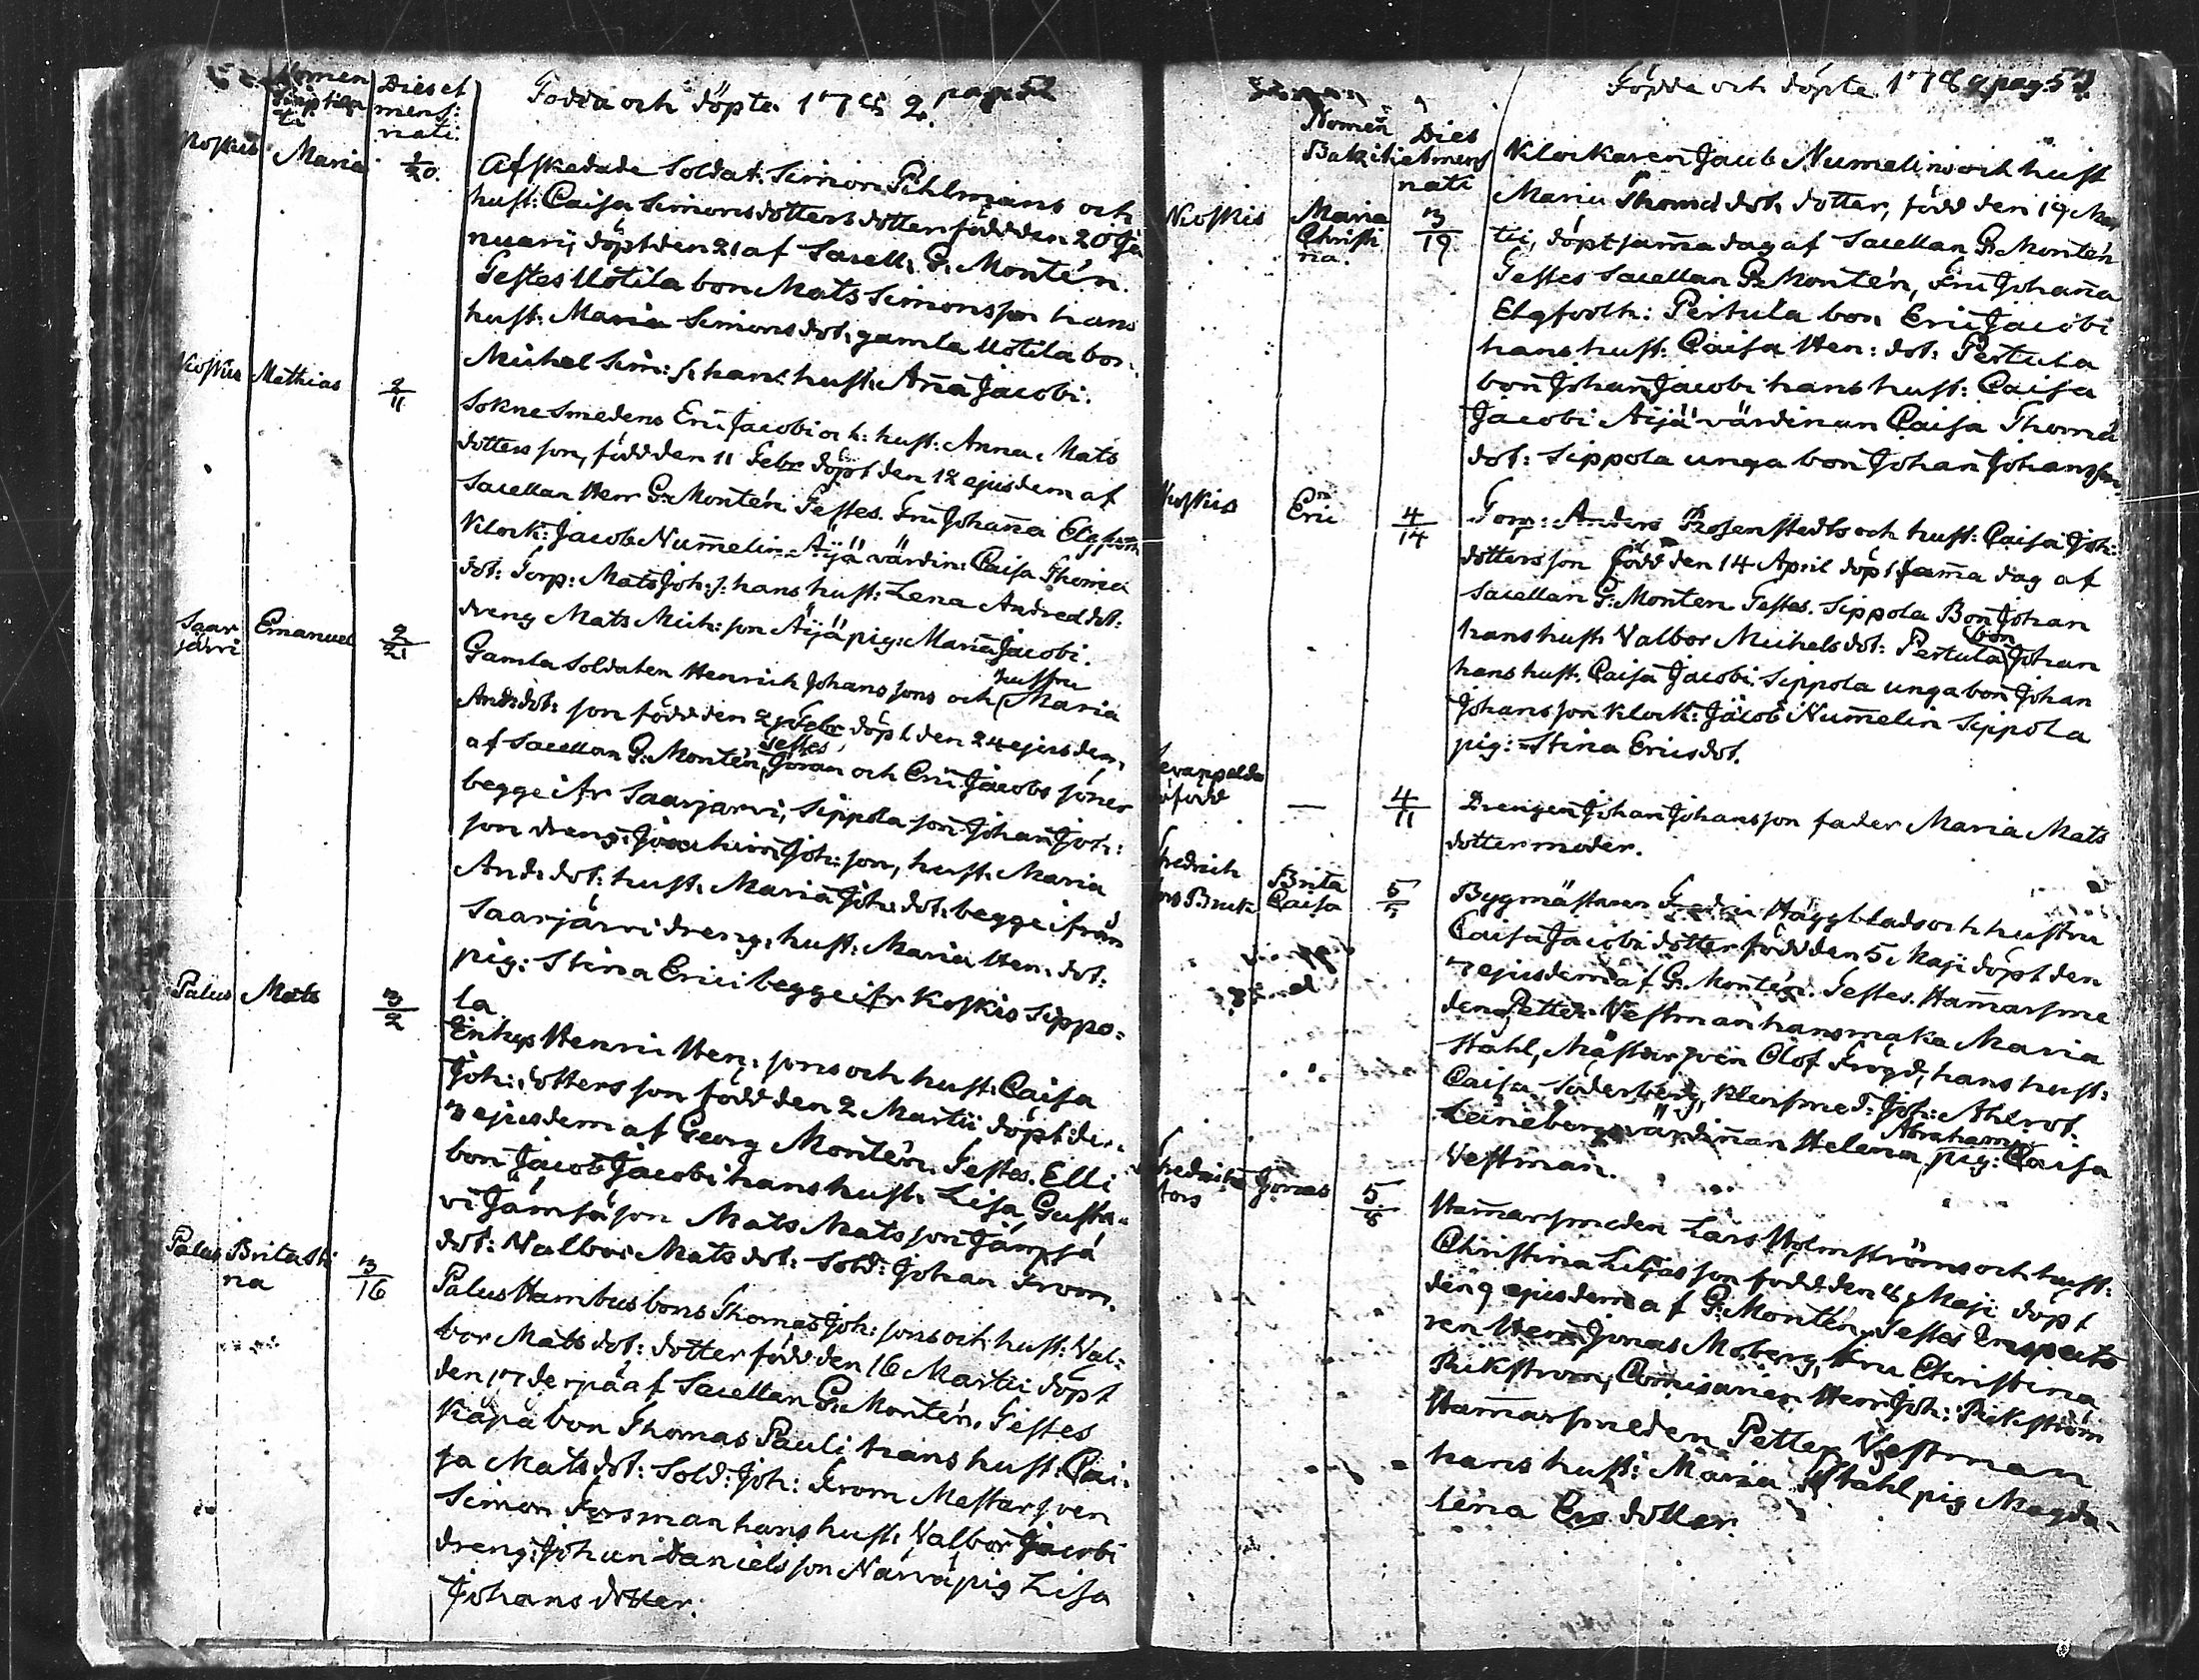 Nomen
Dies et
mens:
nati.
Födda och döpte 1782. pag: 52
Koskis Maria 1/20.
Afskedade Soldat: Simon Pihlmans och
hust: Caisa Simonsdotters dotter född den 20 Ja
nuarij döpt den 21 af Sacell: G: Montén.
Testes Uotila bon Mats Simonsson hans
hust: Maria Simonsdot: gamla Uotila bon
Michel Sim: s: hans hust: Anna Jacobi.
Koskis Mathias 2/11
Soknesmedens Eric Jacobi och: hust: Anna Mats
dotters son, född den 11 Febr döpt den 12 ejusdem af
Sacellan Herr G: Montén Testes. Fru Johanna Elgfooth
Klock: Jacob Numelin Äijä värdin: Caisa Thomæ
dot: Torp: Mats Joh: s: hans hust: Lena Andreædot:
dreng Mats Mich: son Äijä pig: Maria Jacobi.
Saar
järvi Emanuel 2/21
Gamla Soldaten Henrich Johanssons och hustru Maria
And: dot: son född den 21 Febr döpt den 24 ejusdem
af Sacellan G: Montén, Testes Göran och Eric Jacobs söner
begge ifr Saarjarvi, Sippola son Johan Joh:
son dreng: Joachim Joh: son, hust: Maria
And: dot: hust: Maria Joh: dot: begge ifrån
Saarjärvi dreng: hust: Maria Hen: dot:
pig: Stina Erici begge ifr Koskis Sippo=
la
Palus Mats 3/2
Enhys Henric Hen: sons och hust: Caisa
Joh: dotters son född den 2 Martii döpt den
3 ejusdem af Georg Montén. Testes. Elli
bon Jacob Jacobi hans hust: Lisa Gusta=
vi Jämsä son Mats Matsson Jämsä
dot: Valbor Mats dot: Sold: Johan From.
Palus Brita Sti
na 3/16
Palus Hambus bons Thomas Joh: sons och hust: Val=
bor Mats dot: dotter född den 16 Martii döpt
den 17 derpå af Sacellan G: Montén, Testes
Käpä bon Thomas Pauli hans hust: Cai=
sa Mats dot: Sold: Joh: From Mestarsven
Simon Forsman hans hust: Valbor Jacobi
dreng: Johan Danielsson Närvä pig Lisa
Johans dotter.
Födda och döpte 1782 pag: 53.
Nomen
Dies
et mens
nati
Koskis Maria
Christi
na. 3/19
Klockaren Jacob Numelins och hust
Maria Thomæ dot: dotter, född den 19 Mar
tii, döpt samma dag af Sacellan G: Montén
Testes Sacellan G: Montén, Fru Johanna
Elgfooth: Pertula bon Eric Jacobi
hans hust: Caisa Hen: dot: Pertula
bon Johan Jacobi hans hust: Caisa
Jacobi Äijä värdinnan Caisa Thomæ
dot: Sippola unga bon Johan Johansson
Koskis Eric 4/14
Torp: Anders Rosenstedts och hust: Caisa Joh:
dotters son född den 14 April döpt samma dag af
Sacellan G: Monten Testes. Sippola Bon Johan
hans hust: Valbor Michelsdot: Pertula bon Johan
hans hust: Caisa Jacobi Sippola unga bon Johan
Johansson Klock: Jacob Numelin Sippola
pig: Stina Ericsdot.
född — 4/11
Drengen Johan Johansson fader Maria Mats
dotter moder.
Fredrich
fors Bruk Brita
Caisa 5/5
Bygmästaren Häggblads och hustru
Caisa Jacobi dotter född den 5 Maji döpt den
7 ejusdem af G: Montén. Testes. Hammarsme
den Petter Vestman hans maka Maria
Stahl, Mästarsven Olof Frögd, hans hust:
Caisa Söderberg, Klensmed: Joh: Ahlrot.
värdinnan Helena Abraham pig: Caisa
Vestman.
Fredrichs
fors Jonas 5/8
Hammarsmeden Lars Holmströms och hust:
Christina Lilias son född den 8 Maji döpt
den 9 ejusdem af G: Montén. Testes Inspecto
ren Herr Jonas Moberg, Fru Christina
Rikstrom, Comisarien Herr Joh: Rikström
Hammarsmeden Petter Vestman
hans hust: Maria Stahl pig Magda=
lena Ers dotter.